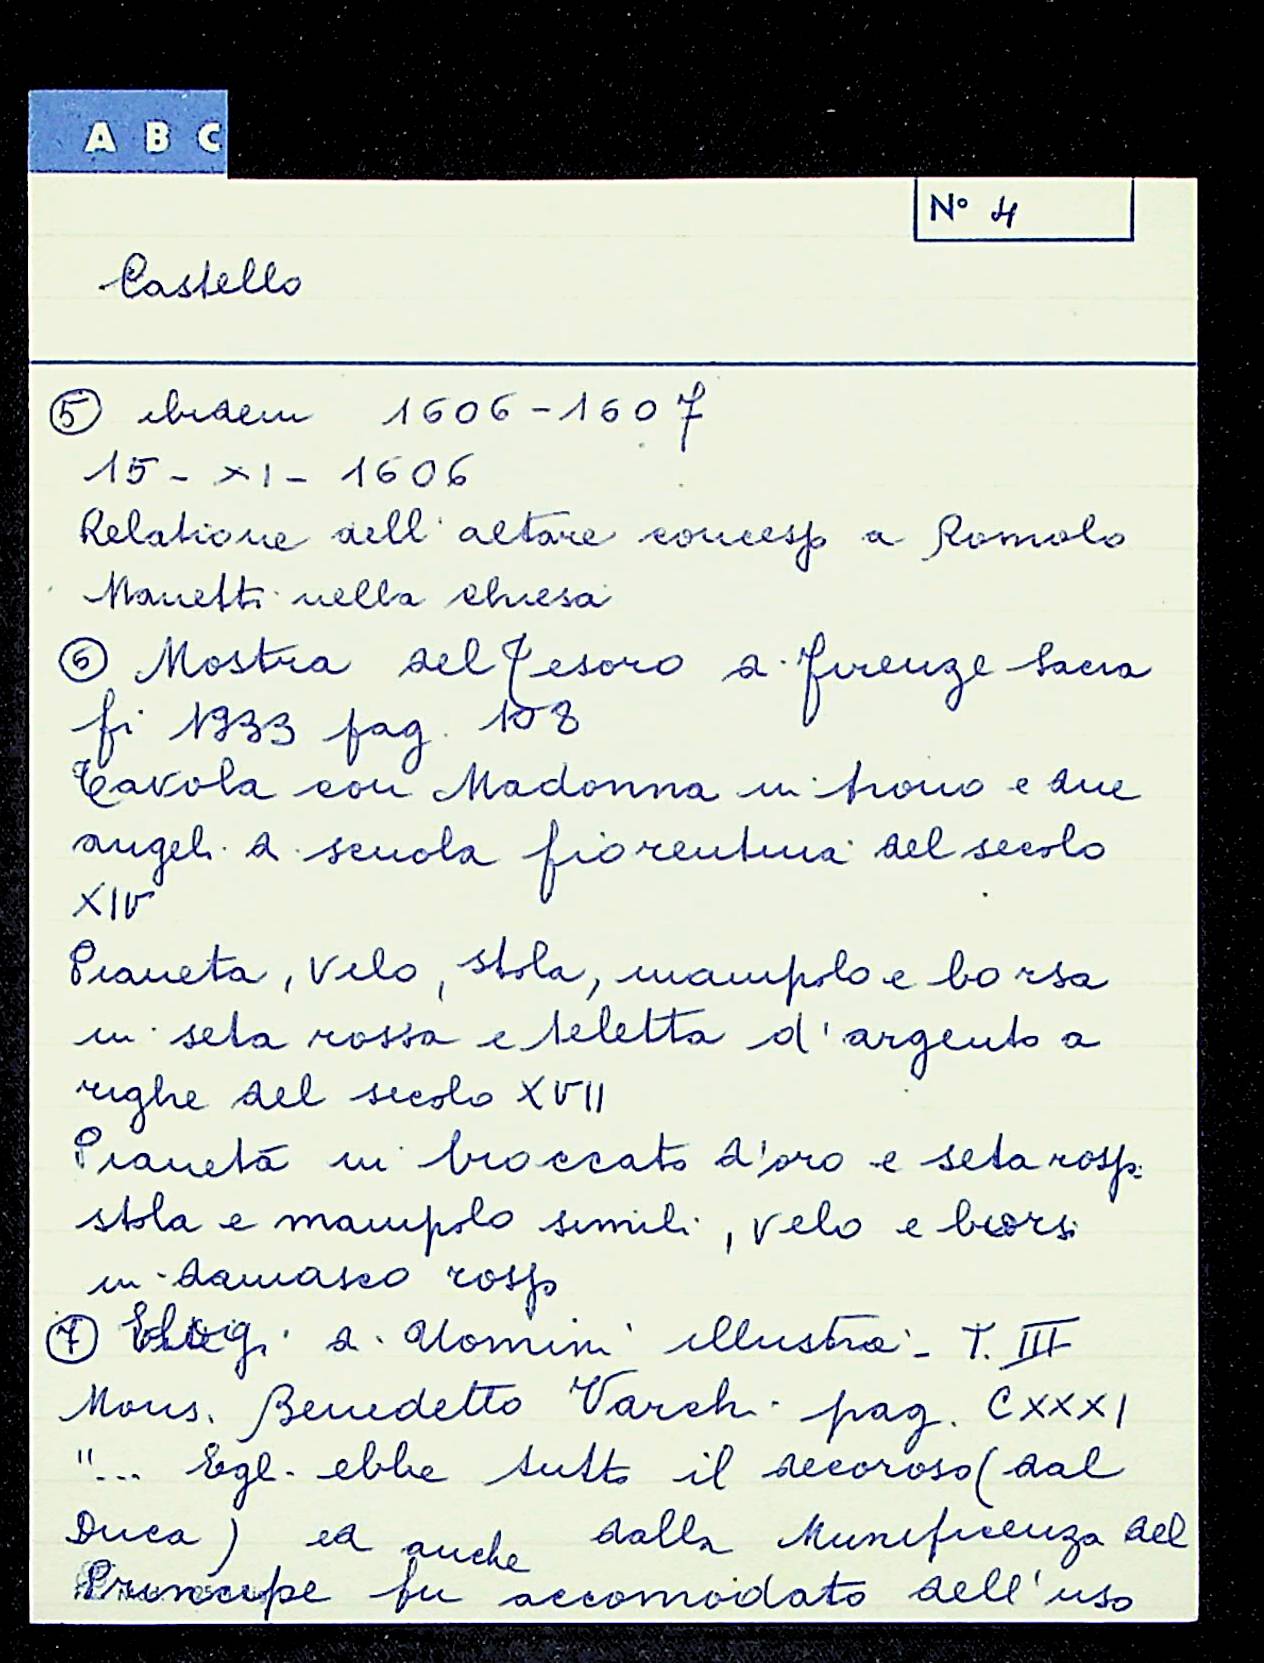 A B C
N° 4
Castello
⑤ ibidem 1606-1607
15-XI-1606
Relatione dell'altare concesso a Romolo
Manetti nella chiesa
⑥ Mostra del Tesoro di Firenze Sacra
fi 1933 pag. 108
Tavola con Madonna in trono e due
angeli di scuola fiorentina del secolo
XIV
Pianeta, velo, stola, manipolo e borsa
in seta rossa e teletta d'argento a
righe del secolo XVII
Pianeta in broccato d'oro e seta rossa
stola e manipolo simili, velo e borsi
in damasco rosso
⑦ Elogi di Uomini illustri - T. III
Mons. Benedetto Varchi pag. CXXXI
"... Egli ebbe tutto il decoroso (dal
Duca) ed anche dalla Munificenza del
Principe fu accomodato dell'uso